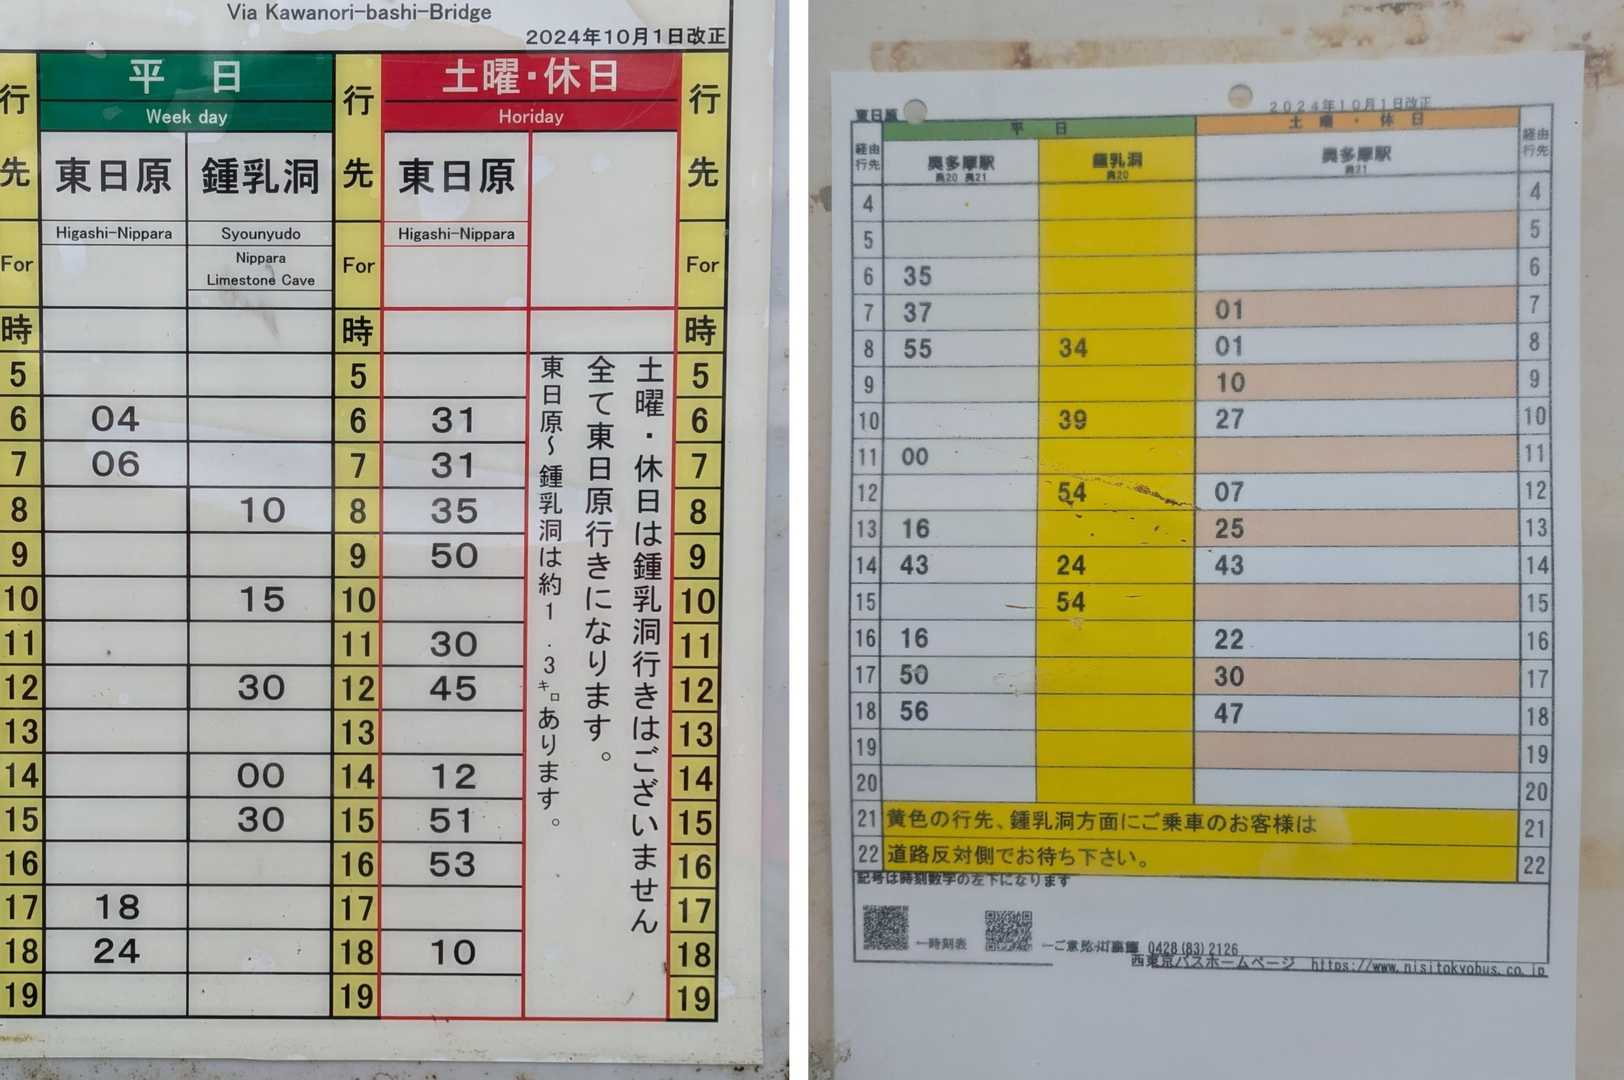 Via Kawanori-bashi-Bridge
2024年10月1日改正
行先 平日 行先 土曜・休日 行先
Week day Horiday
東日原 鍾乳洞 東日原
Higashi-Nippara Syounyudo Higashi-Nippara
For Nippara For For
Limestone Cave
時 時 時
5 5 5
6 04 6 31 6
7 06 7 31 7
8 10 8 35 8
9 9 50 9
10 15 10 10
11 11 30 11
12 30 12 45 12
13 13 13
14 00 14 12 14
15 30 15 51 15
16 16 53 16
17 18 17 17
18 24 18 10 18
19 19 19
土曜・休日は鍾乳洞行きはございません
全て東日原行きになります。
東日原～鍾乳洞は約1.3㌔あります。
東日原
2024年10月1日改正
平日 土曜・休日
経由行先 奥多摩駅 鍾乳洞 奥多摩駅 経由行先
奥20 奥21 奥20 奥21
4 4
5 5
6 35 6
7 37 01 7
8 55 34 01 8
9 10 9
10 39 27 10
11 00 11
12 54 07 12
13 16 25 13
14 43 24 43 14
15 54 15
16 16 22 16
17 50 30 17
18 56 47 18
19 19
20 20
21 黄色の行先、鍾乳洞方面にご乗車のお客様は 21
22 道路反対側でお待ち下さい。 22
記号は時刻数字の左下になります
←時刻表 ←ご意見 0428(83)2126
西東京バスホームページ https://www.nisitokyobus.co.jp